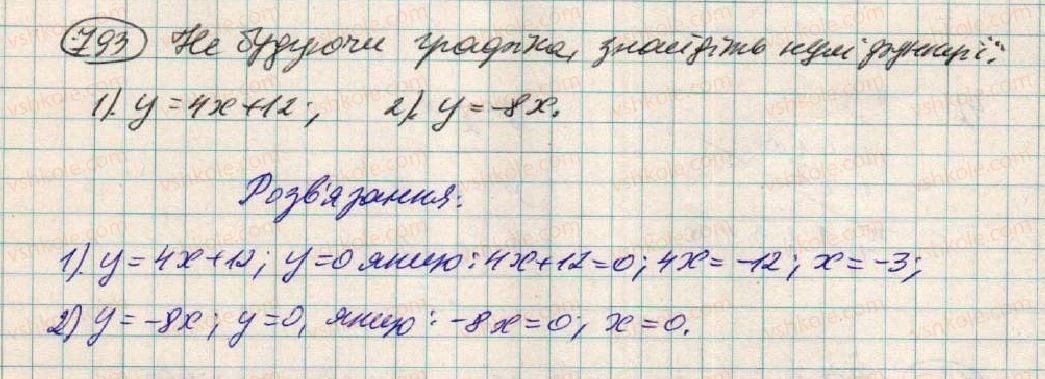 793 Не будуючи графіка, знайдіть нулі функції:
1). y = 4x+12; 2). y = -8x.
Розв'язання:
1) y = 4x+12; y=0 якщо: 4x+12=0; 4x= -12; x= -3;
2) y= -8x; y=0, якщо: -8x=0; x=0.